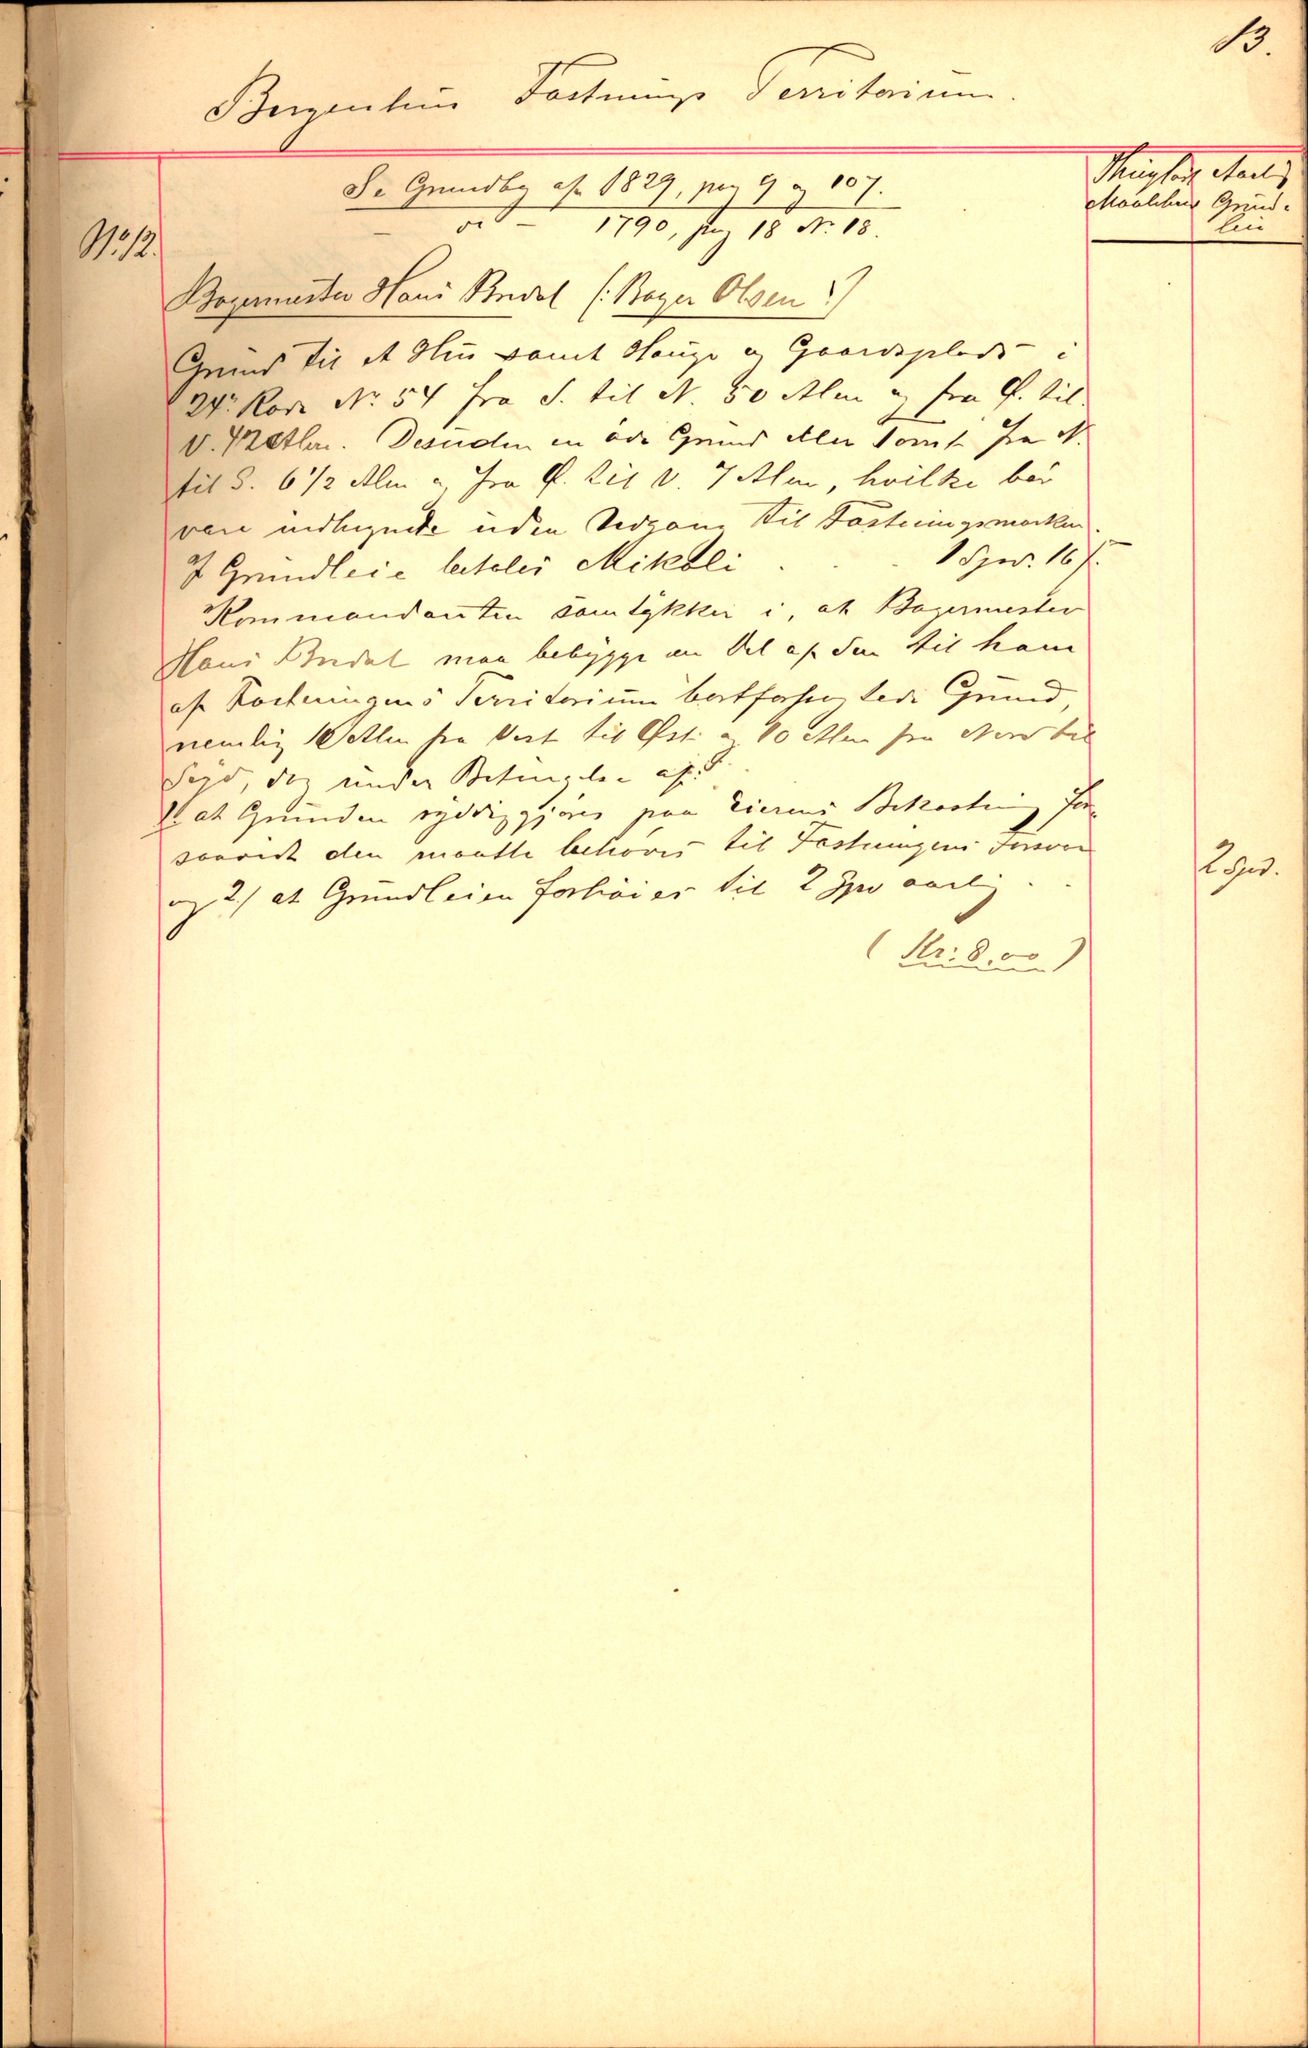 13.
Bergenhus Fæstnings Territorium.
Se Grundbog af 1829, pag 9 og 107.
— do — 1790, pag 18 Nr. 18.
Aarlig
Maalebrev Grund-
leie
No 12.
Bagermester Hans Bredal (: Bager Olsen :)
Grund til et Hus samt Hauge og Gaardsplads i
24de Rode Nr. 54 fra S. til N. 50 Alen og fra Ø. til
V. 42 Alen. Desuden en øde Grund eller Tomt fra N.
til S. 6 1/2 Alen og fra Ø. til V. 7 Alen, hvilke bør
være indhegnede uden Udgang til Fæstningsmarken.
I Grundleie betales Mikoli . . . 1 Spd. 16 ß.
Kommandanten samtykker i, at Bagermester
Hans Bredal maa bebygge en Del af den til ham
af Fæstningens Territorium bortforpagtede Grund,
nemlig 10 Alen fra Vest til Øst og 10 Alen fra Nord til
Syd, dog under Betingelse af:
1/ at Grunden ryddiggjøres paa Eierens Bekostning for-
saavidt den maatte behøves til Fæstningens Forsvar
og 2/ at Grundleien forhøies til 2 Spd aarlig . .
2 Spd.
(Kr: 8.00)